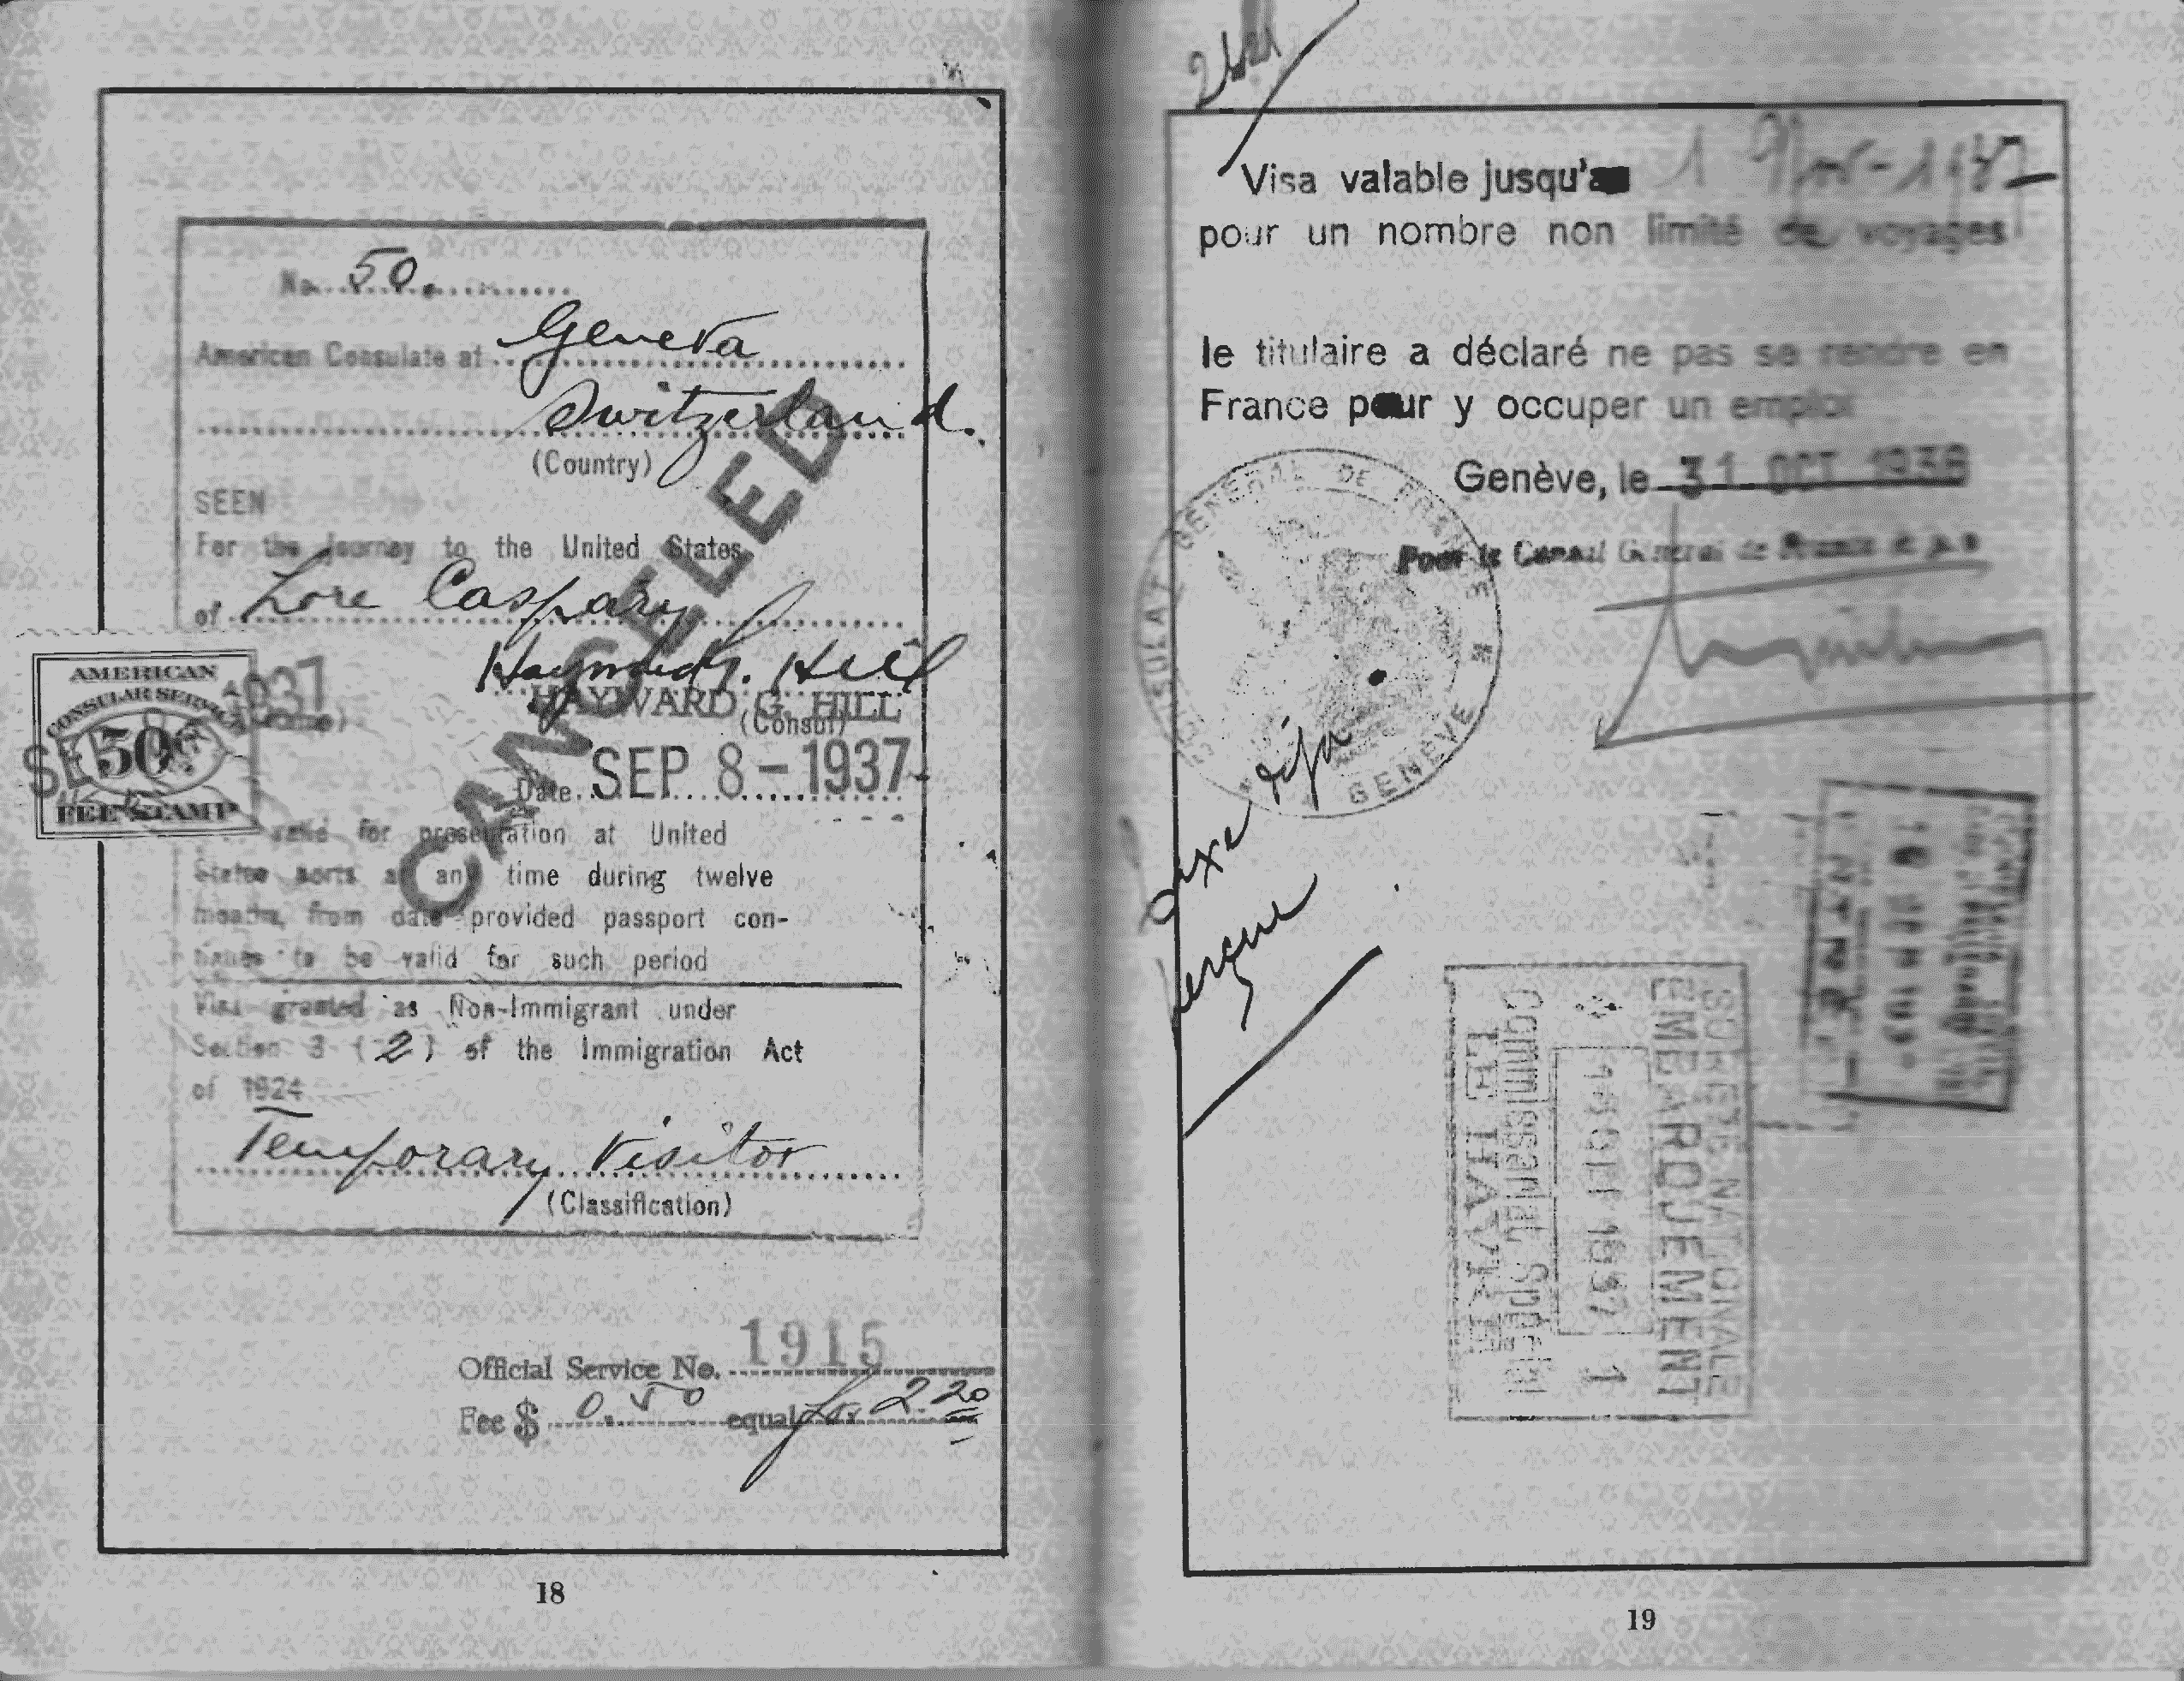 No. 50.
American Consulate at Geneva
Switzerland.
(Country)
SEEN
For the journey to the United States
of Lore Caspary
Hayward G. Hill
HAYWARD G. HILL
(Consul)
AMERICAN
CONSULAR SERVICE
50c
FEE STAMP
1937
Date SEP 8-1937
CANCELLED
valid for presentation at United
States ports at any time during twelve
months, from date provided passport con-
tinues to be valid for such period
Visa granted as Non-Immigrant under
Section 3 (2) of the Immigration Act
of 1924
Temporary Visitor
(Classification)
Official Service No. 1915
Fee $ 0.50 equal fr. 2.20
18
Visa valable jusqu'au 1 Nov-1937
pour un nombre non limité de voyages
le titulaire a déclaré ne pas se rendre en
France pour y occuper un emploi
Genève, le 31 OCT 1936
Pour le Consul Général de France
CONSULAT GENERAL DE FRANCE
GENÈVE
Taxe déja
perçue
SURETE NATIONALE
EMBARQUEMENT
1937 1
Commissariat Spécial
LE HAVRE
19